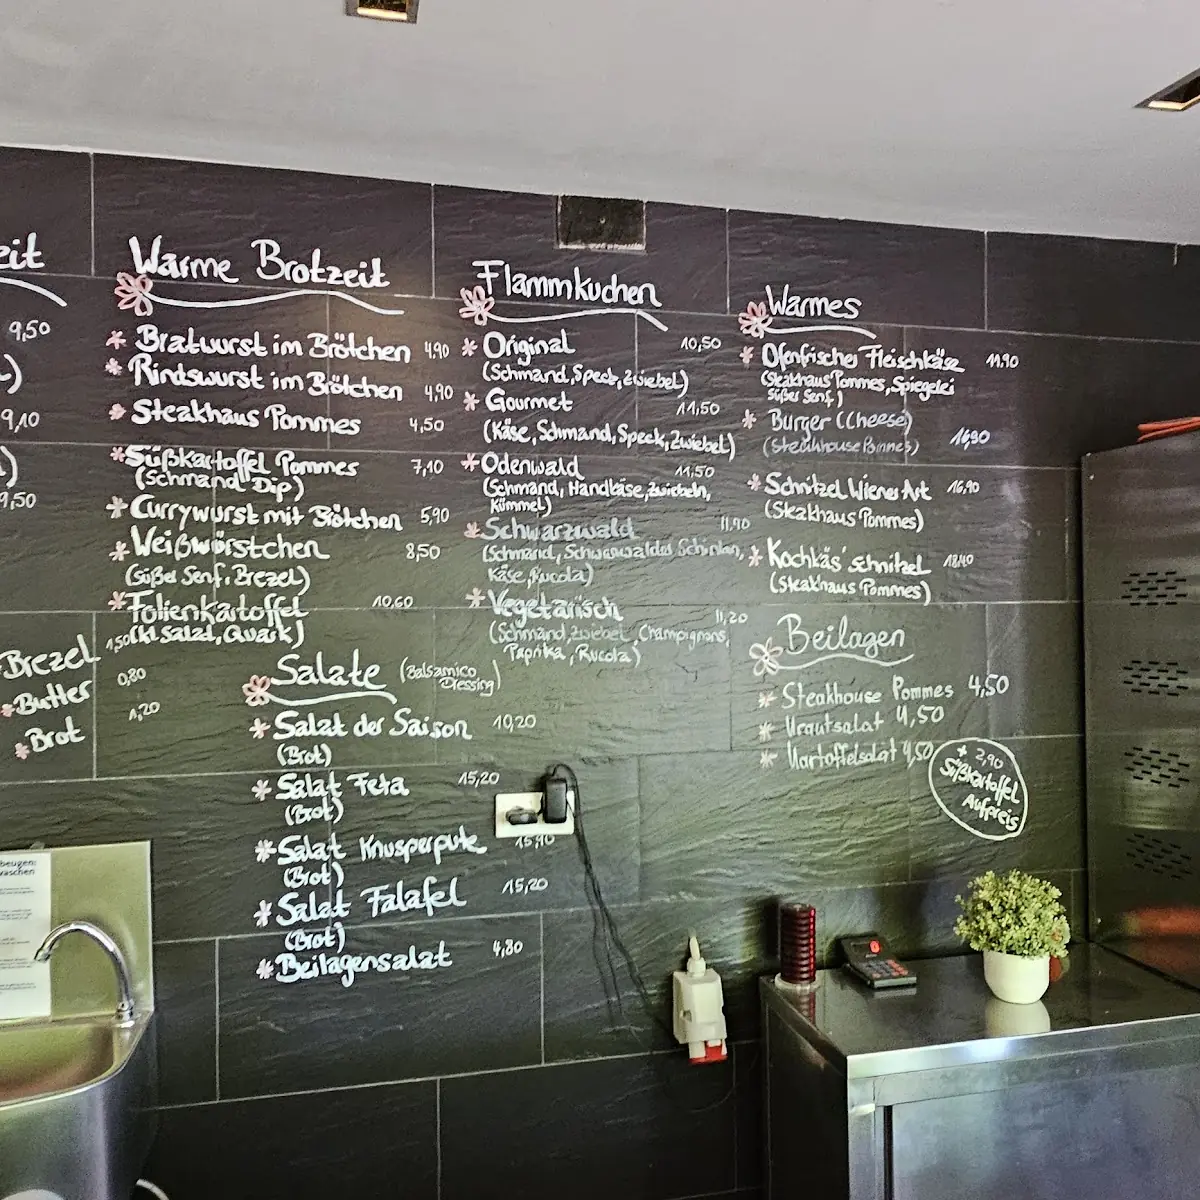 eit
9,50
9,10
9,50
Brezel 1,50
Butter 0,80
Brot 1,20
Warme Brotzeit
Bratwurst im Brötchen 4,90
Rindswurst im Brötchen 4,90
Steakhaus Pommes 4,50
Süßkartoffel Pommes 7,10
(Schmand Dip)
Currywurst mit Brötchen 5,90
Weißwürstchen 8,50
(Süßer Senf, Brezel)
Folienkartoffel 10,60
(kl Salat, Quark)
Salate (Balsamico
Dressing)
Salat der Saison 10,20
(Brot)
Salat Feta 15,20
(Brot)
Salat Knusperpute 15,90
(Brot)
Salat Falafel 15,20
(Brot)
Beilagensalat 4,80
Flammkuchen
Original 10,50
(Schmand, Speck, Zwiebel)
Gourmet 11,50
(Käse, Schmand, Speck, Zwiebel)
Odenwald 11,50
(Schmand, Handkäse, Zwiebeln,
Kümmel)
Schwarzwald 11,90
(Schmand, Schwarzwälder Schinken,
Käse, Rucola)
Vegetarisch 11,20
(Schmand, Zwiebel, Champignons,
Paprika, Rucola)
Warmes
Ofenfrischer Fleischkäse 11,90
(Steakhaus Pommes, Spiegelei
Süßer Senf)
Burger (Cheese)
(Steakhouse Pommes) 16,90
Schnitzel Wiener Art 16,90
(Steakhaus Pommes)
Kochkäs' schnitzel 18,40
(Steakhaus Pommes)
Beilagen
Steakhouse Pommes 4,50
Krautsalat 4,50
Kartoffelsalat 4,50
+ 2,90
Süßkartoffel
Aufpreis